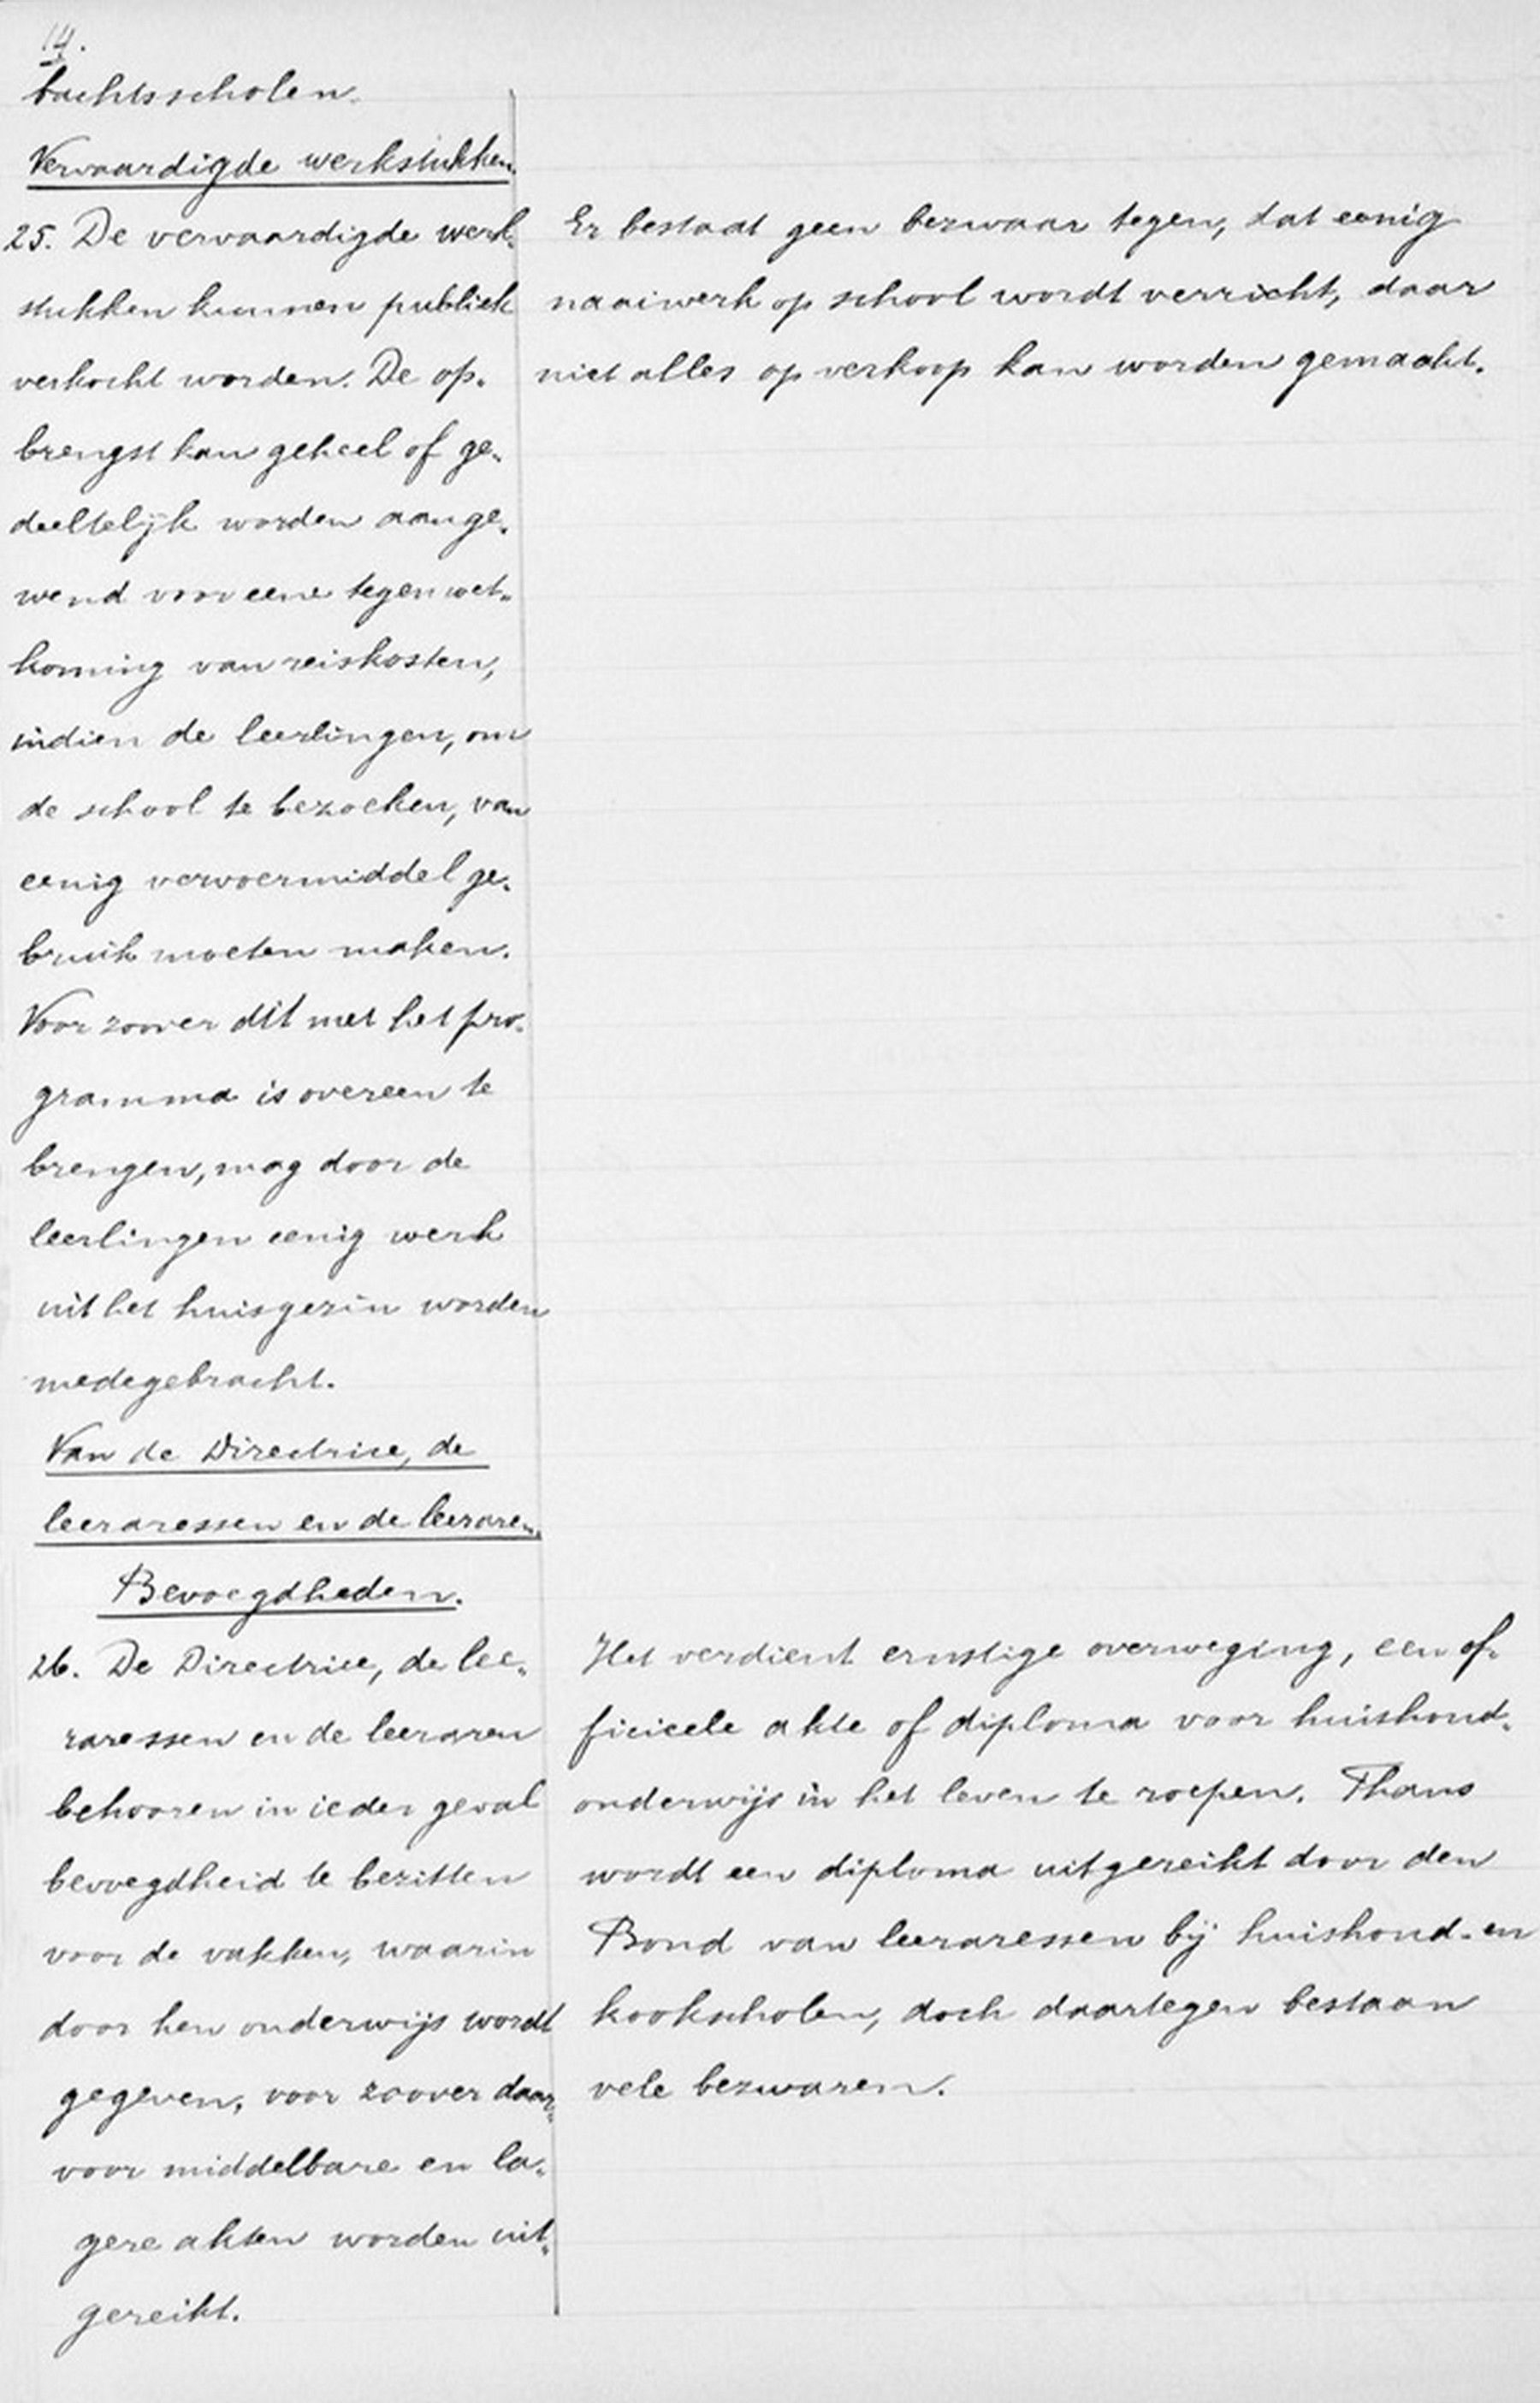 14.
bachtsscholen.
Vervaardigde werkstukken.
25. De vervaardigde werk„
stukken kunnen publiek
verkocht worden. De op„
brengst kan geheel of ge„
deeltelijk worden aange„
wend voor eene tegenwet„
koming van reiskosten,
indien de leerlingen, om
de school te bezoeken, van
eenig vervoermiddel ge„
bruik moeten maken.
Voor zoover dit met het pro„
gramma is overeen te
brengen, mag door de
leerlingen eenig werk
uit het huisgezin worden
medegebracht.
Van de Directrice, de
leeraressen en de leeraren.
Bevoegdheden.
26. De Directrice, de lee„
raressen en de leeraren
behooren in ieder geval
bevoegdheid te bezitten
voor de vakken, waarin
door hen onderwijs wordt
gegeven, voor zoover daar„
voor middelbare en la„
gere akten worden uit„
gereikt.
Er bestaat geen bezwaar tegen, dat eenig
naaiwerk op school wordt verricht, daar
niet alles op verkoop kan worden gemaakt.
Het verdient ernstige overweging, een of„
ficieele akte of diploma voor huishoud„
onderwijs in het leven te roepen. Thans
wordt een diploma uitgereikt door den
Bond van leeraressen bij huishoud- en
kookscholen, doch daartegen bestaan
vele bezwaren.